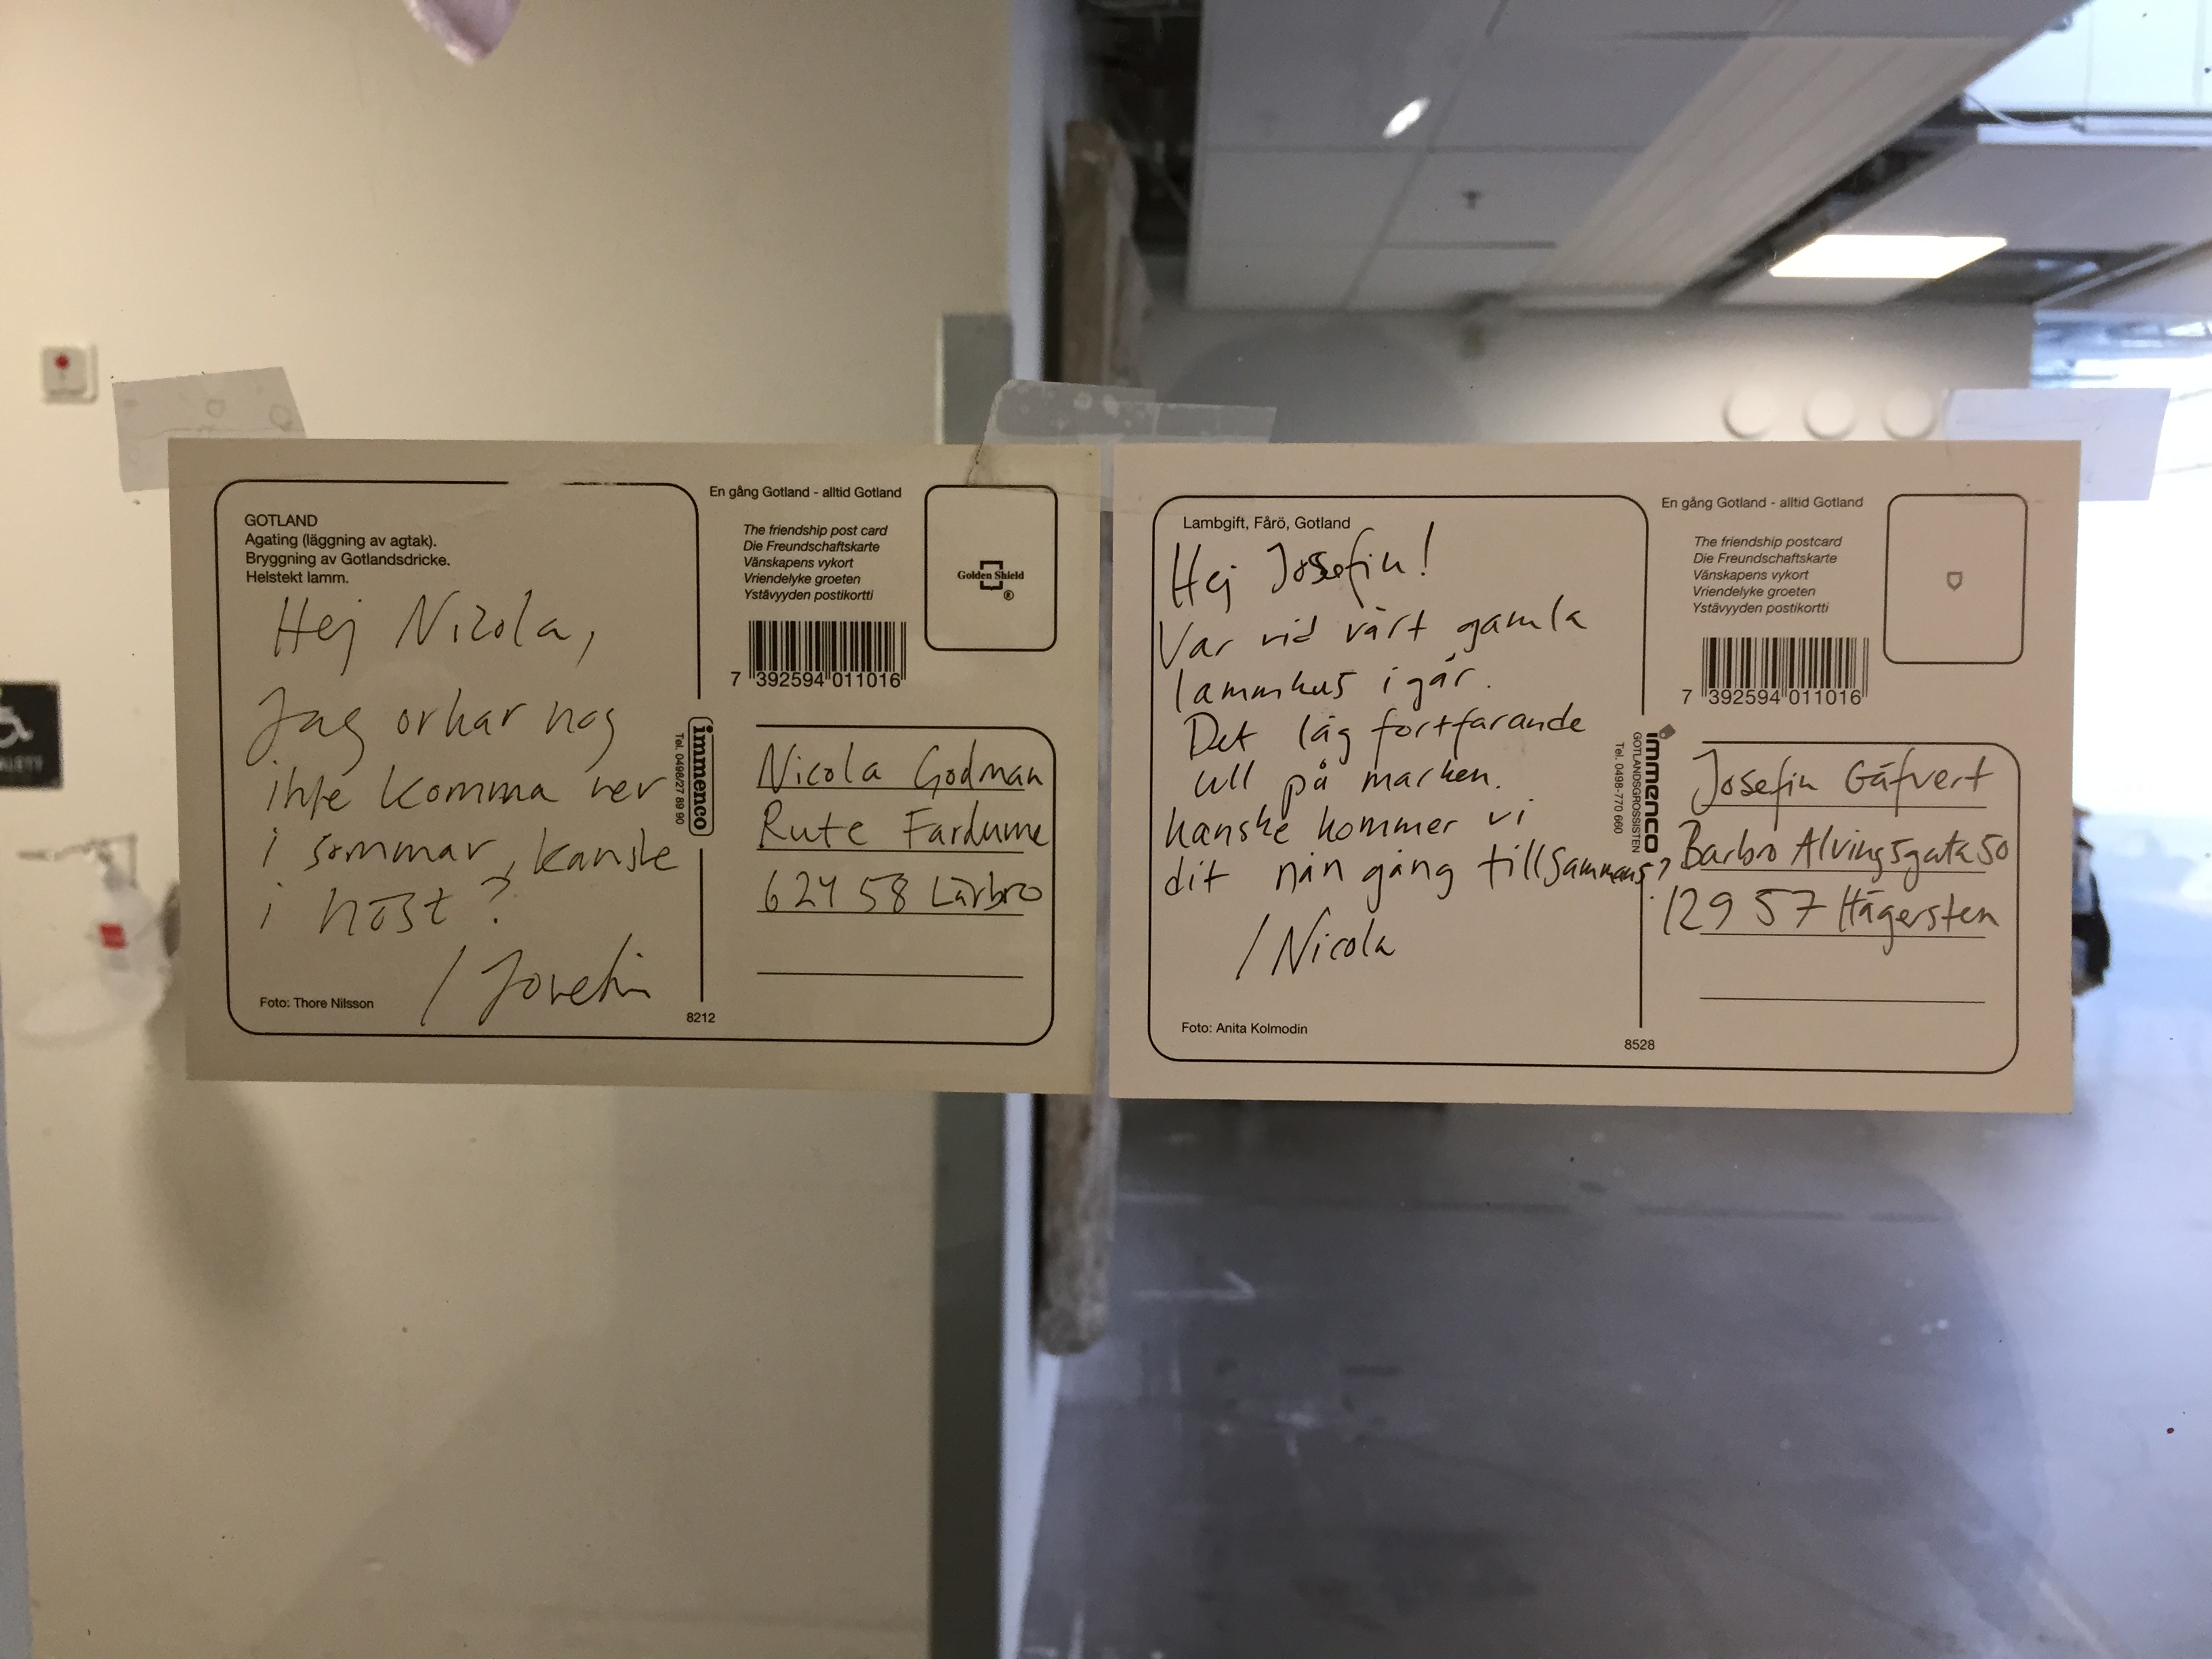 GOTLAND
Agating (läggning av agtak).
Bryggning av Gotlandsdricke.
Helstekt lamm.
Hej Nicola,
Jag orkar nog
inte komma ner
i sommar, kanske
i höst?
/ Josefin
Foto: Thore Nilsson
immenco
Tel. 0498/27 89 90
8212
En gång Gotland - alltid Gotland
The friendship post card
Die Freundschaftskarte
Vänskapens vykort
Vriendelyke groeten
Ystävyyden postikortti
Golden Shield
®
7 392594 011016
Nicola Godman
Rute Fardume
624 58 Lärbro
Lambgift, Fårö, Gotland
Hej Josefin!
Var vid vårt gamla
lammhus igår.
Det låg fortfarande
ull på marken.
Kanske kommer vi
dit nån gång tillsammans?
/ Nicola
Foto: Anita Kolmodin
immenco
GOTLANDSGROSSISTEN
Tel. 0498-770 660
8528
En gång Gotland - alltid Gotland
The friendship postcard
Die Freundschaftskarte
Vänskapens vykort
Vriendelyke groeten
Ystävyyden postikortti
7 392594 011016
Josefin Gäfvert
Barbro Alvingsgata 50
129 57 Hägersten